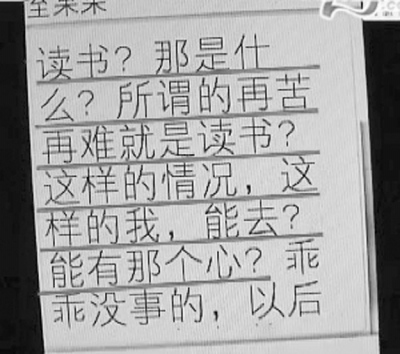 至某某
读书？那是什
么？所谓的再苦
再难就是读书？
这样的情况，这
样的我，能去？
能有那个心？乖
乖没事的，以后